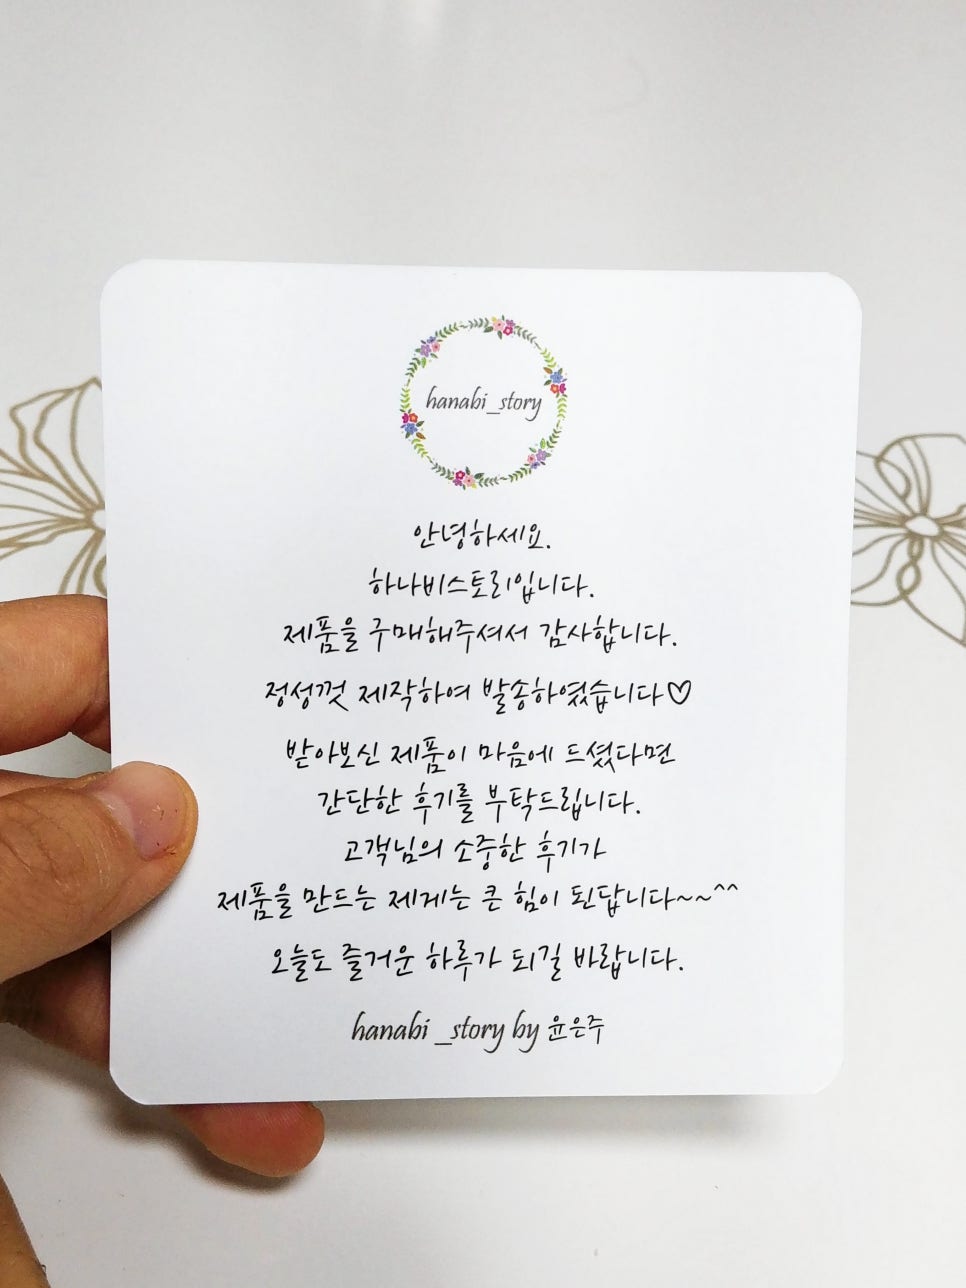 hanabi_story
안녕하세요.
하나비스토리입니다.
제품을 구매해주셔서 감사합니다.
정성껏 제작하여 발송하였습니다♡
받아보신 제품이 마음에 드셨다면
간단한 후기를 부탁드립니다.
고객님의 소중한 후기가
제품을 만드는 제게는 큰 힘이 된답니다~~^^
오늘도 즐거운 하루가 되길 바랍니다.
hanabi _story by 윤은주